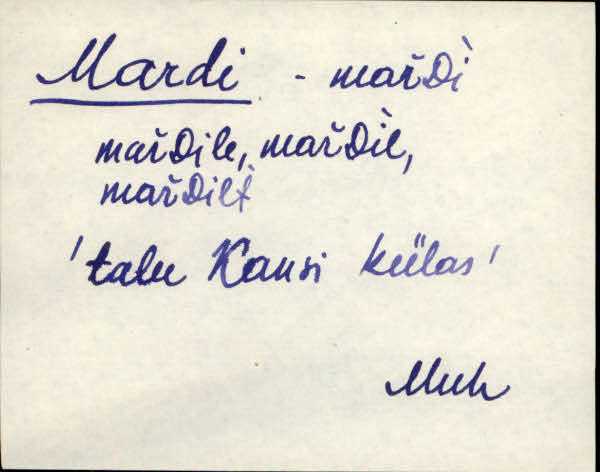 Mardi - mařDì
mařDile, mařDìl,
mařDilt
'talu Kansi külas'
Muh